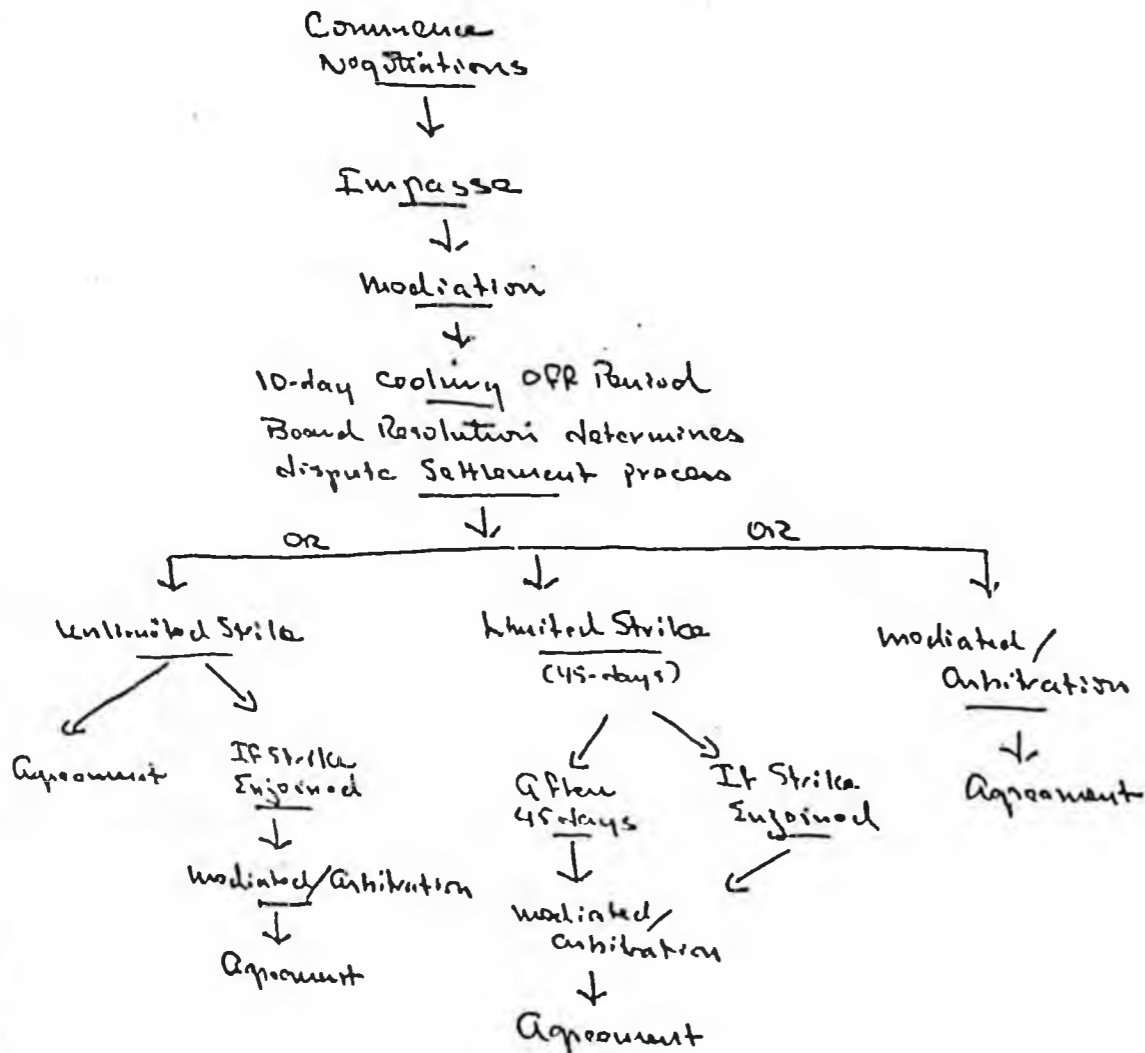 Commence
Negotiations
Impasse
Mediation
10-day cooling off Period
Board Resolution determines
dispute Settlement process
OR
OR
Unlimited Strike
Limited Strike
(45-days)
Mediated/
Arbitration
Agreement
If Strike
Enjoined
After
45-days
If Strike
Enjoined
Agreement
Mediated/Arbitration
Mediated/
Arbitration
Agreement
Agreement